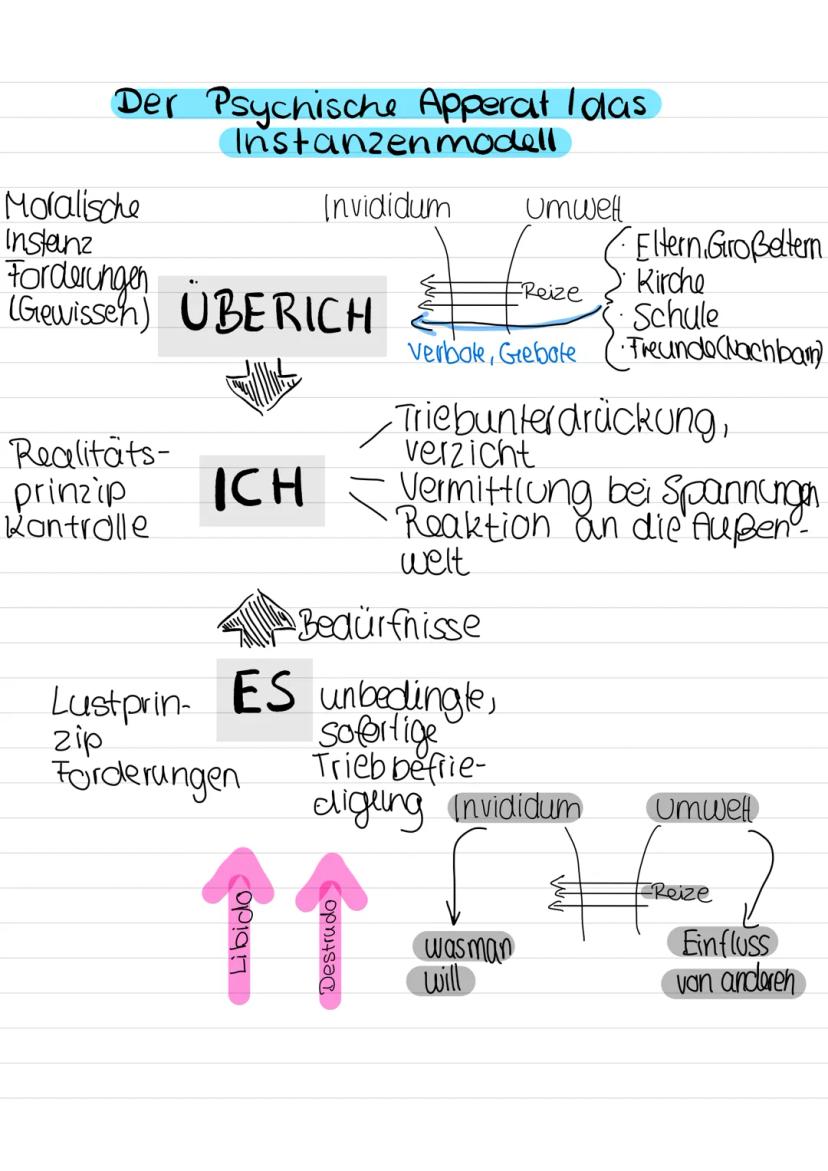 Der Psychische Apperat / das
Instanzenmodell
Moralische
Instanz
Forderungen
(Gewissen)
ÜBERICH
Invididum
Umwelt
Reize
Verbote, Gebote
· Eltern, Großeltern
· Kirche
· Schule
· Freunde (Nachbarn)
Realitäts-
prinzip
Kontrolle
ICH
Triebunterdrückung,
verzicht
Vermittlung bei Spannungen
Reaktion an die Außen-
welt
Bedürfnisse
Lustprin-
zip
Forderungen
ES
unbedingte,
sofortige
Triebbefrie-
digung
Libido
Destrudo
Invididum
Umwelt
Reize
was man
will
Einfluss
von anderen